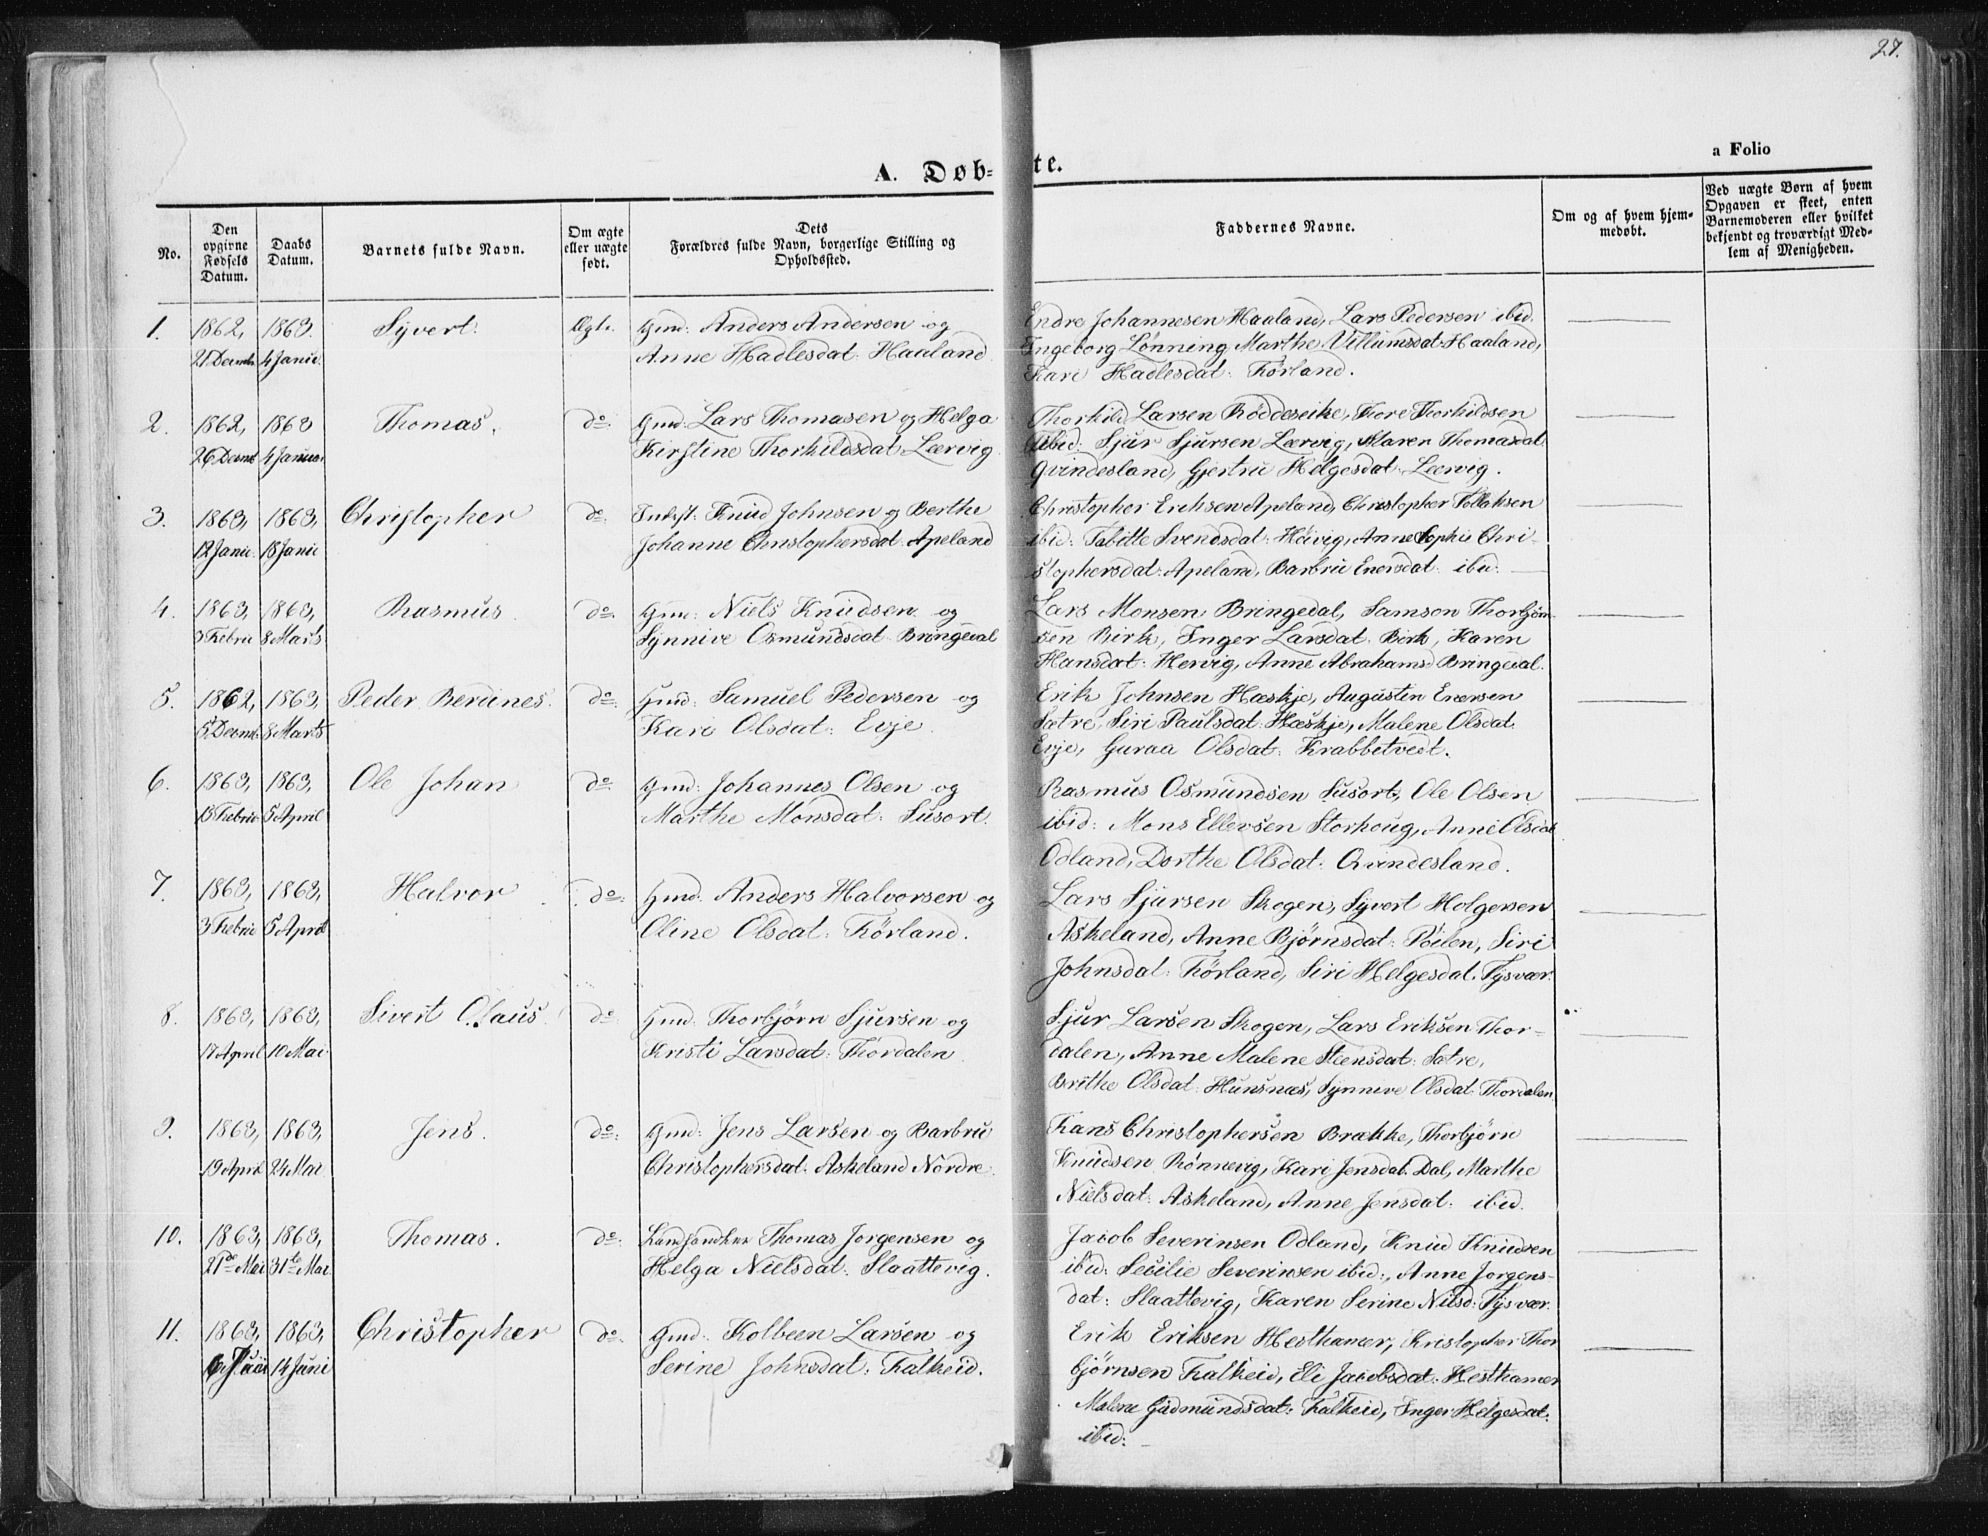 27.
a Folio
A. Døb-te.
No.
Den opgivne Fødsels Datum.
Daabs Datum.
Barnets fulde Navn.
Om ægte eller uægte født.
Dets Forældres fulde Navn, borgerlige Stilling og Opholdssted.
Faddernes Navne.
Om og af hvem hjem-medøbt.
Ved uægte Børn af hvem Opgaven er skeet, enten Barnemoderen eller hvilket bekjendt og troværdigt Med-lem af Menigheden.
1. 1862, 1863. Syvert. Ægte. Gmd: Anders Andersen og
21 Decemb. 4 Janu. Anne Hadlesdat: Haaland
Endre Johannesen Haaland, Lars Pedersen ibid.
Ingeborg Lønning, Marthe Villumsdat: Haaland,
Kari Hadlesdat: Førland.
2. 1862, 1863 Thomas. do. Gmd: Lars Thomasen og Helga
26 Decmb 4 Januar Kirstine Thorkildsdat: Lærvig
Thorkild Larsen Røddeseike, Thore Thorkildsen
ibid: Sjur Sjursen Lærvig, Maren Thomasdat
Qvindesland, Gjertru Helgesdat: Lærvig.
3. 1863, 1863, Christopher do. Inderst: Knud Johnsen og Berthe
12 Janu. 18 Janu Johanne Christophersdat: Apeland
Christopher Eriksen Apeland, Christopher Tollaksen
ibid: Tabitte Svendsdat: Høivig, Anne Sophie Chri-
stophersdat: Apeland, Barbru Enersdat: ibid.
4. 1863, 1863, Rasmus do. Gmd: Niels Knudsen og
3 Febru 8 Marts Synnive Osmundsdat: Bringedal
Lars Monsen Bringedal, Samson Thorbjørn-
sen Birk, Inger Larsdat: Birk, Karen
Hansdat: Hervig, Anne Abrahamsd Bringedal.
5. 1862, 1863, Peder Berdines. do. Gmd: Samuel Pedersen og
5 Decmb. 8 Marts Kari Olsdat: Evje.
Erik Johnsen Hæskje, Augustin Enersen
Sætre, Siri Paulsdat: Hæskje, Malene Olsdat
Evje, Guraa Olsdat: Krabbetvedt.
6. 1863, 1863, Ole Johan do. Gmd: Johannes Olsen og
15 Febru 5 April Marthe Monsdat: Susort.
Rasmus Osmundsen Susort, Ole Olsen
ibid: Mons Ellevsen Storhoug, Anne Olsdat
Odland, Dorthe Olsdat: Qvindesland.
7. 1863, 1863, Halvor do. Gmd. Anders Halvorsen og
3 Febru 5 April Oline Olsdat: Førland.
Lars Sjursen Skogen, Syvert Holgersen
Askeland, Anne Bjørnsdat: Roilen, Siri
Johnsdat: Førland, Siri Helgesdat: Tysvær.
8. 1863, 1863, Sivert Olaus do. Gmd: Thorbjørn Sjursen og
17 April 10 Mai Kristi Larsdat: Thordalen
Sjur Larsen Skogen, Lars Eriksen Thor-
dalen, Anne Malene Steensdat: Sætre,
Brithe Olsdat: Hunsnæs, Synneve Olsdat Thordalen
9. 1863, 1863, Jens. do. Gmd: Jens Larsen og Barbru
19 April 24 Mai Christophersdat: Askeland Nordre.
Hans Christophersen Brække, Thorbjørn
Knudsen Rønnevig, Kari Jensdat: Dal, Marthe
Nielsdat: Askeland, Anne Jensdat: ibid.
10. 1863, 1863, Thomas. do. Landhandler Thomas Jorgensen og
21de Mai 31te Mai Helga Nielsdat: Slaattevig.
Jacob Severinsen Odland, Knud Knudsen
ibid: Secilie Severinsen ibid:, Anne Jorgens-
dat: Slaattevig, Karen Serine Nilsd: Tysvær.
11. 1863, 1863, Christopher do. Gmd: Kolbeen Larsen og
6 14 Juni Serine Johnsdat: Falkeid.
Erik Eriksen Hesthamer, Kristopher Thor
bjørnsen Falkeid, Eli Jacobsdat: Hesthamer
Malene Gudmundsdat: Falkeid, Inger Helgesdat:
ibid: